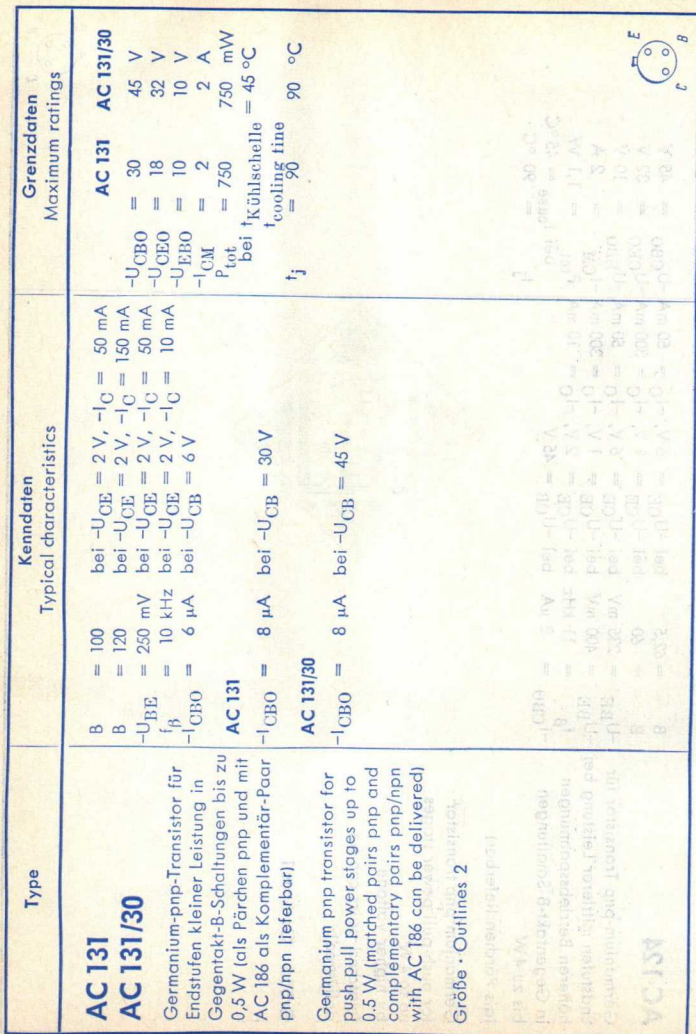 Type
Kenndaten
Typical characteristics
Grenzdaten
Maximum ratings
AC 131
AC 131/30
Germanium-pnp-Transistor für
Endstufen kleiner Leistung in
Gegentakt-B-Schaltungen bis zu
0,5 W (als Pärchen pnp und mit
AC 186 als Komplementär-Paar
pnp/npn lieferbar)
Germanium pnp transistor for
push pull power stages up to
0.5 W (matched pairs pnp and
complementary pairs pnp/npn
with AC 186 can be delivered)
Größe · Outlines 2
B = 100 bei -UCE = 2 V, -IC = 50 mA
B = 120 bei -UCE = 2 V, -IC = 150 mA
-UBE = 250 mV bei -UCE = 2 V, -IC = 50 mA
fβ = 10 kHz bei -UCE = 2 V, -IC = 10 mA
-ICBO = 6 µA bei -UCB = 6 V
AC 131
-ICBO = 8 µA bei -UCB = 30 V
AC 131/30
-ICBO = 8 µA bei -UCB = 45 V
AC 131 AC 131/30
-UCBO = 30 45 V
-UCEO = 18 32 V
-UEBO = 10 10 V
-ICM = 2 2 A
Ptot = 750 750 mW
bei tKühlschelle = 45 °C
tcooling tine
tj = 90 90 °C
E
B
C